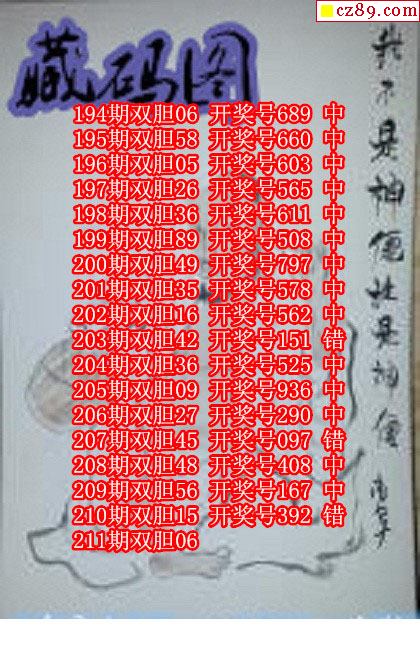 cz89.com
藏码图
194期双胆06 开奖号689 中
195期双胆58 开奖号660 中
196期双胆05 开奖号603 中
197期双胆26 开奖号565 中
198期双胆36 开奖号611 中
199期双胆89 开奖号508 中
200期双胆49 开奖号797 中
201期双胆35 开奖号578 中
202期双胆16 开奖号562 中
203期双胆42 开奖号151 错
204期双胆36 开奖号525 中
205期双胆09 开奖号936 中
206期双胆27 开奖号290 中
207期双胆45 开奖号097 错
208期双胆48 开奖号408 中
209期双胆56 开奖号167 中
210期双胆15 开奖号392 错
211期双胆06
我不是神
是神